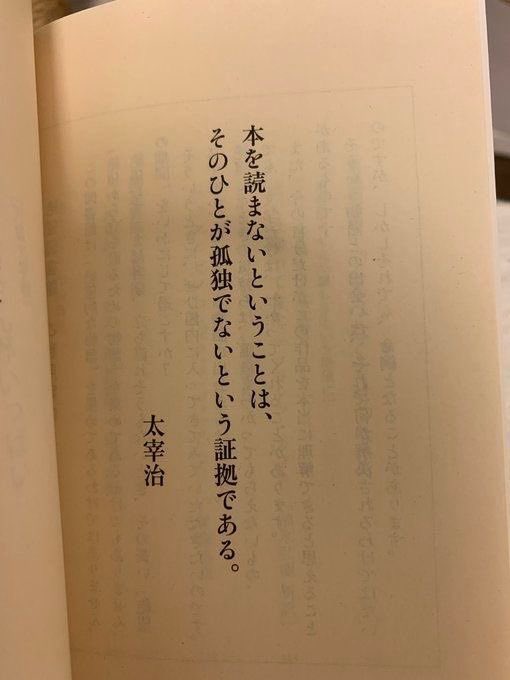 本を読まないということは、
そのひとが孤独でないという証拠である。
太宰治